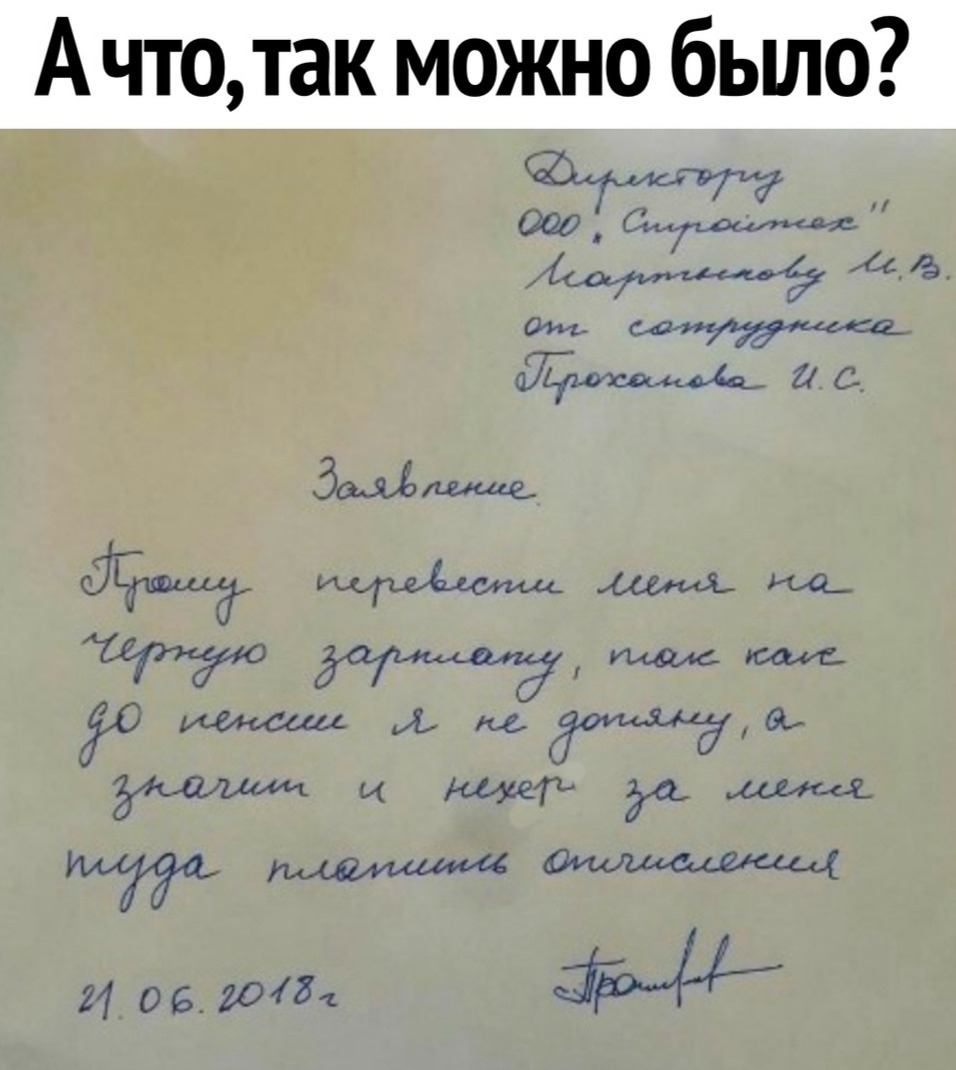 А что, так можно было?
Директору
ООО "Стройтех"
Мартынову И.В.
от сотрудника
Проханова И.С.
Заявление.
Прошу перевести меня на
черную зарплату, так как
до пенсии я не дотяну, а
значит и нехер за меня
туда платить отчисления
21.06.2018г